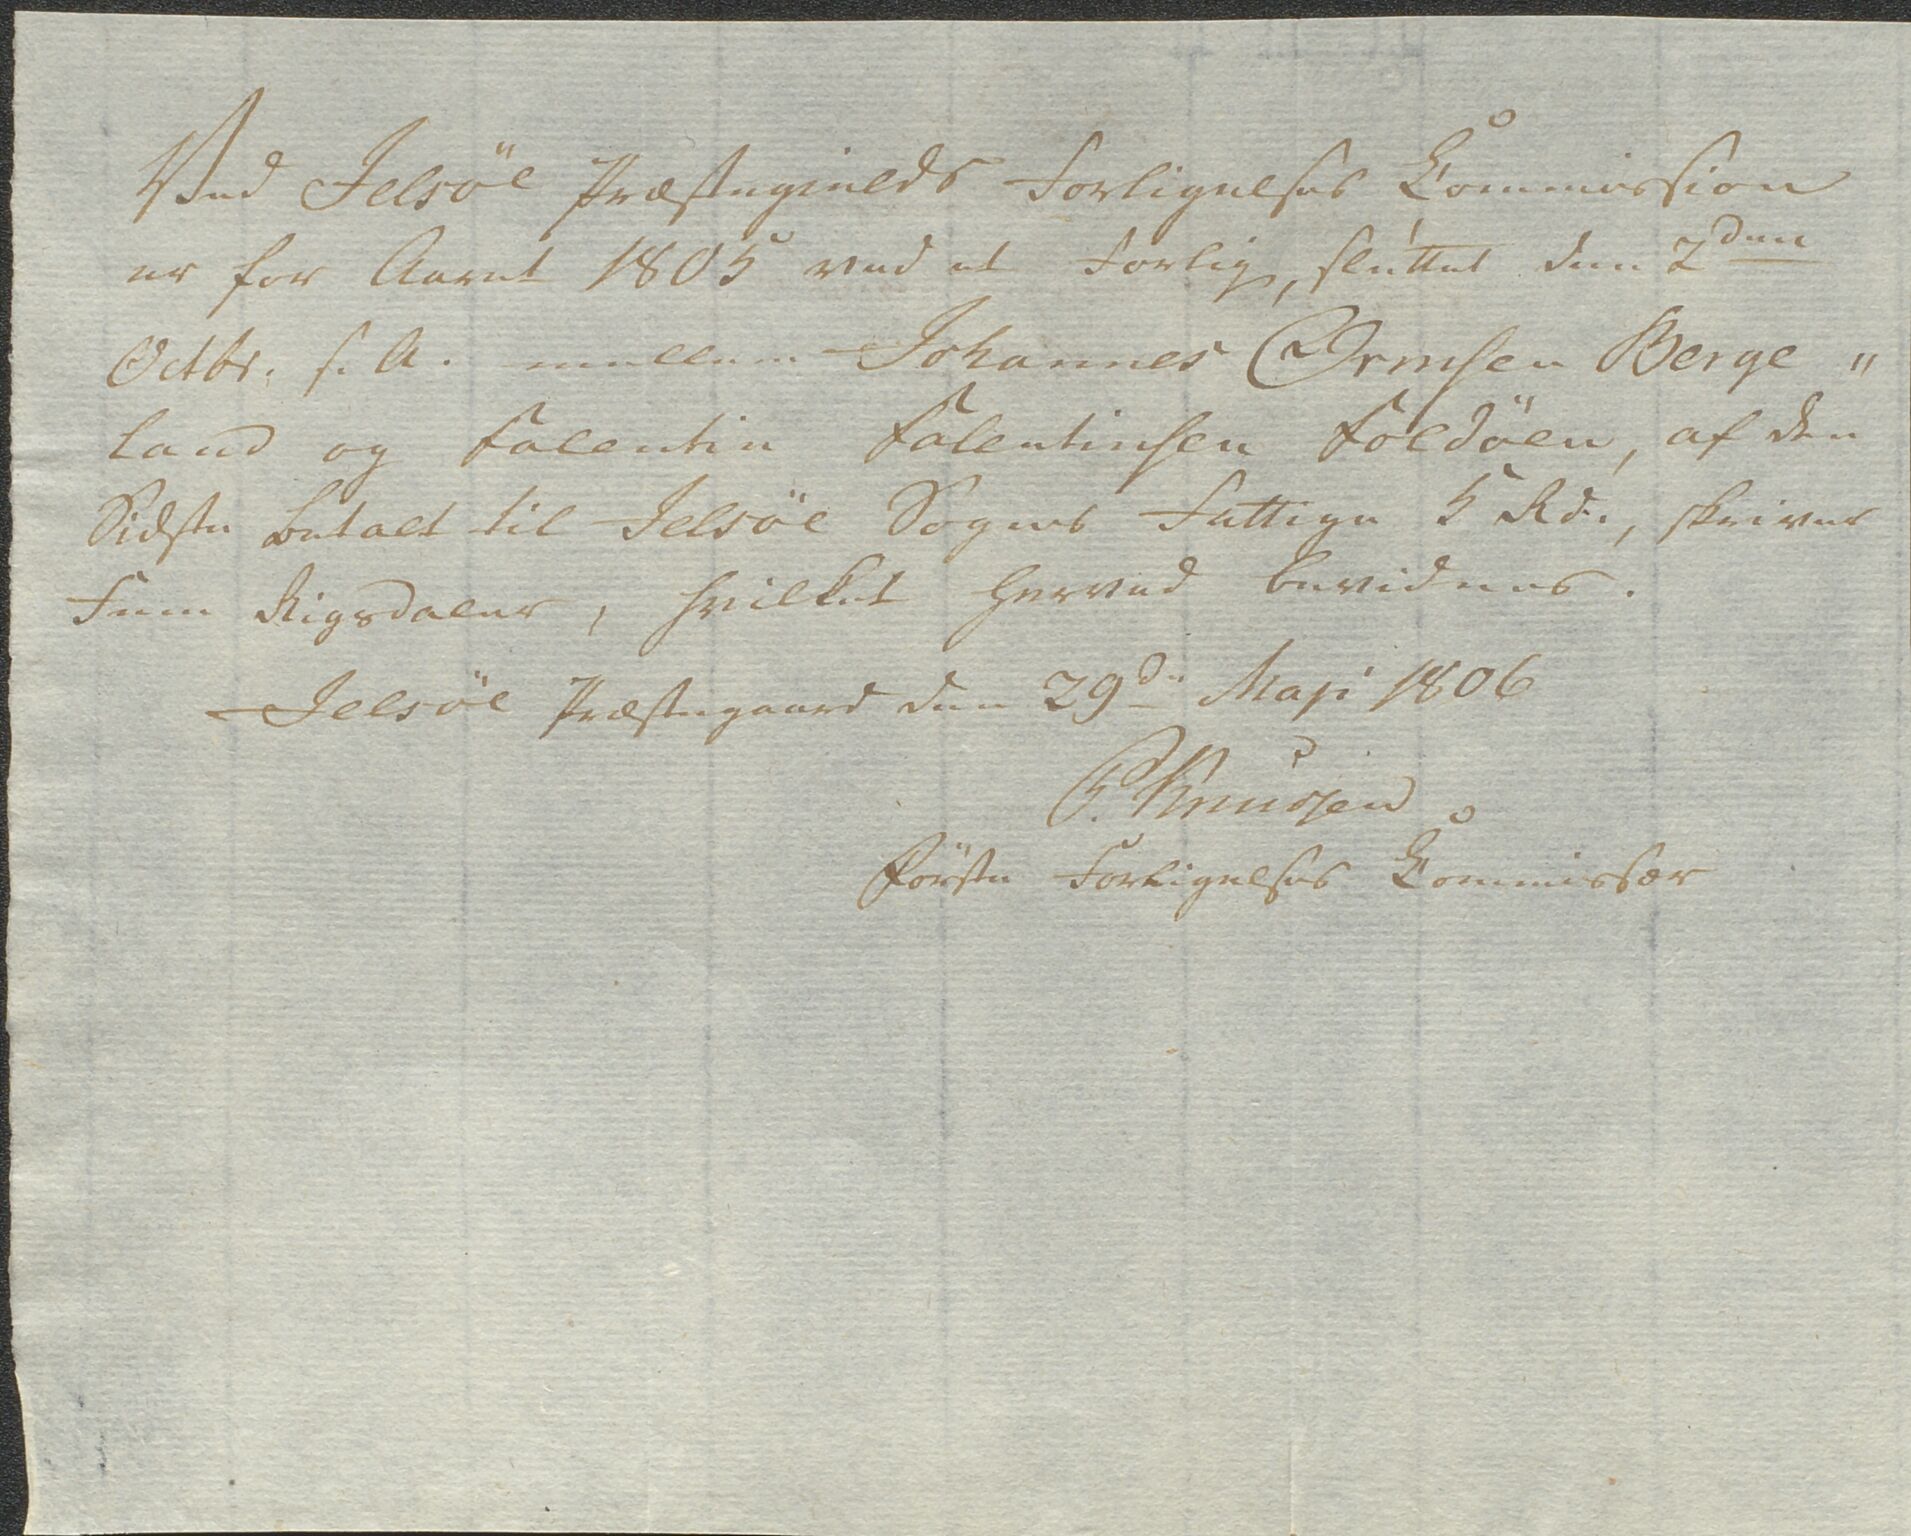 Ved Jelsöe Præstegields Forligelses Commission
er for Aaret 1805 ved et Forlig, sluttet den 2den
Octbr. s. A. mellem Johannes Ormsen Berge "
land og Falentin Falentinsen Foldöen, af den
Sidste betalt til Jelsöe Sogns Fattige 5 Rd., skriver
Fem Rigsdaler, hvilket herved bevidnes.
Jelsöe Præstegaard den 29de Maji 1806
Knudsen
Förste Forligelses Commissær